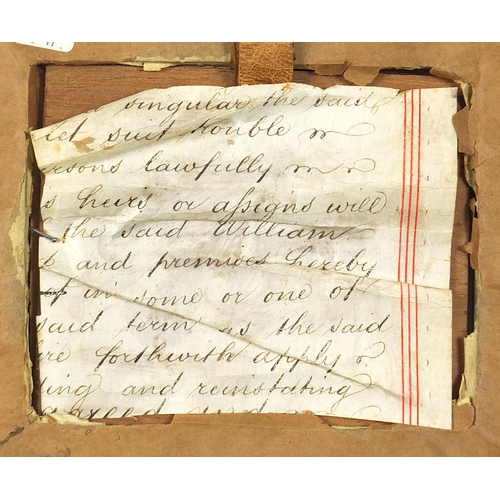 singular the said
let suit trouble
ersons lawfully
s heirs or assigns will
the said William
and premises hereby
in some or one of
said term as the said
re forthwith apply
ding and reinstating
agreed and